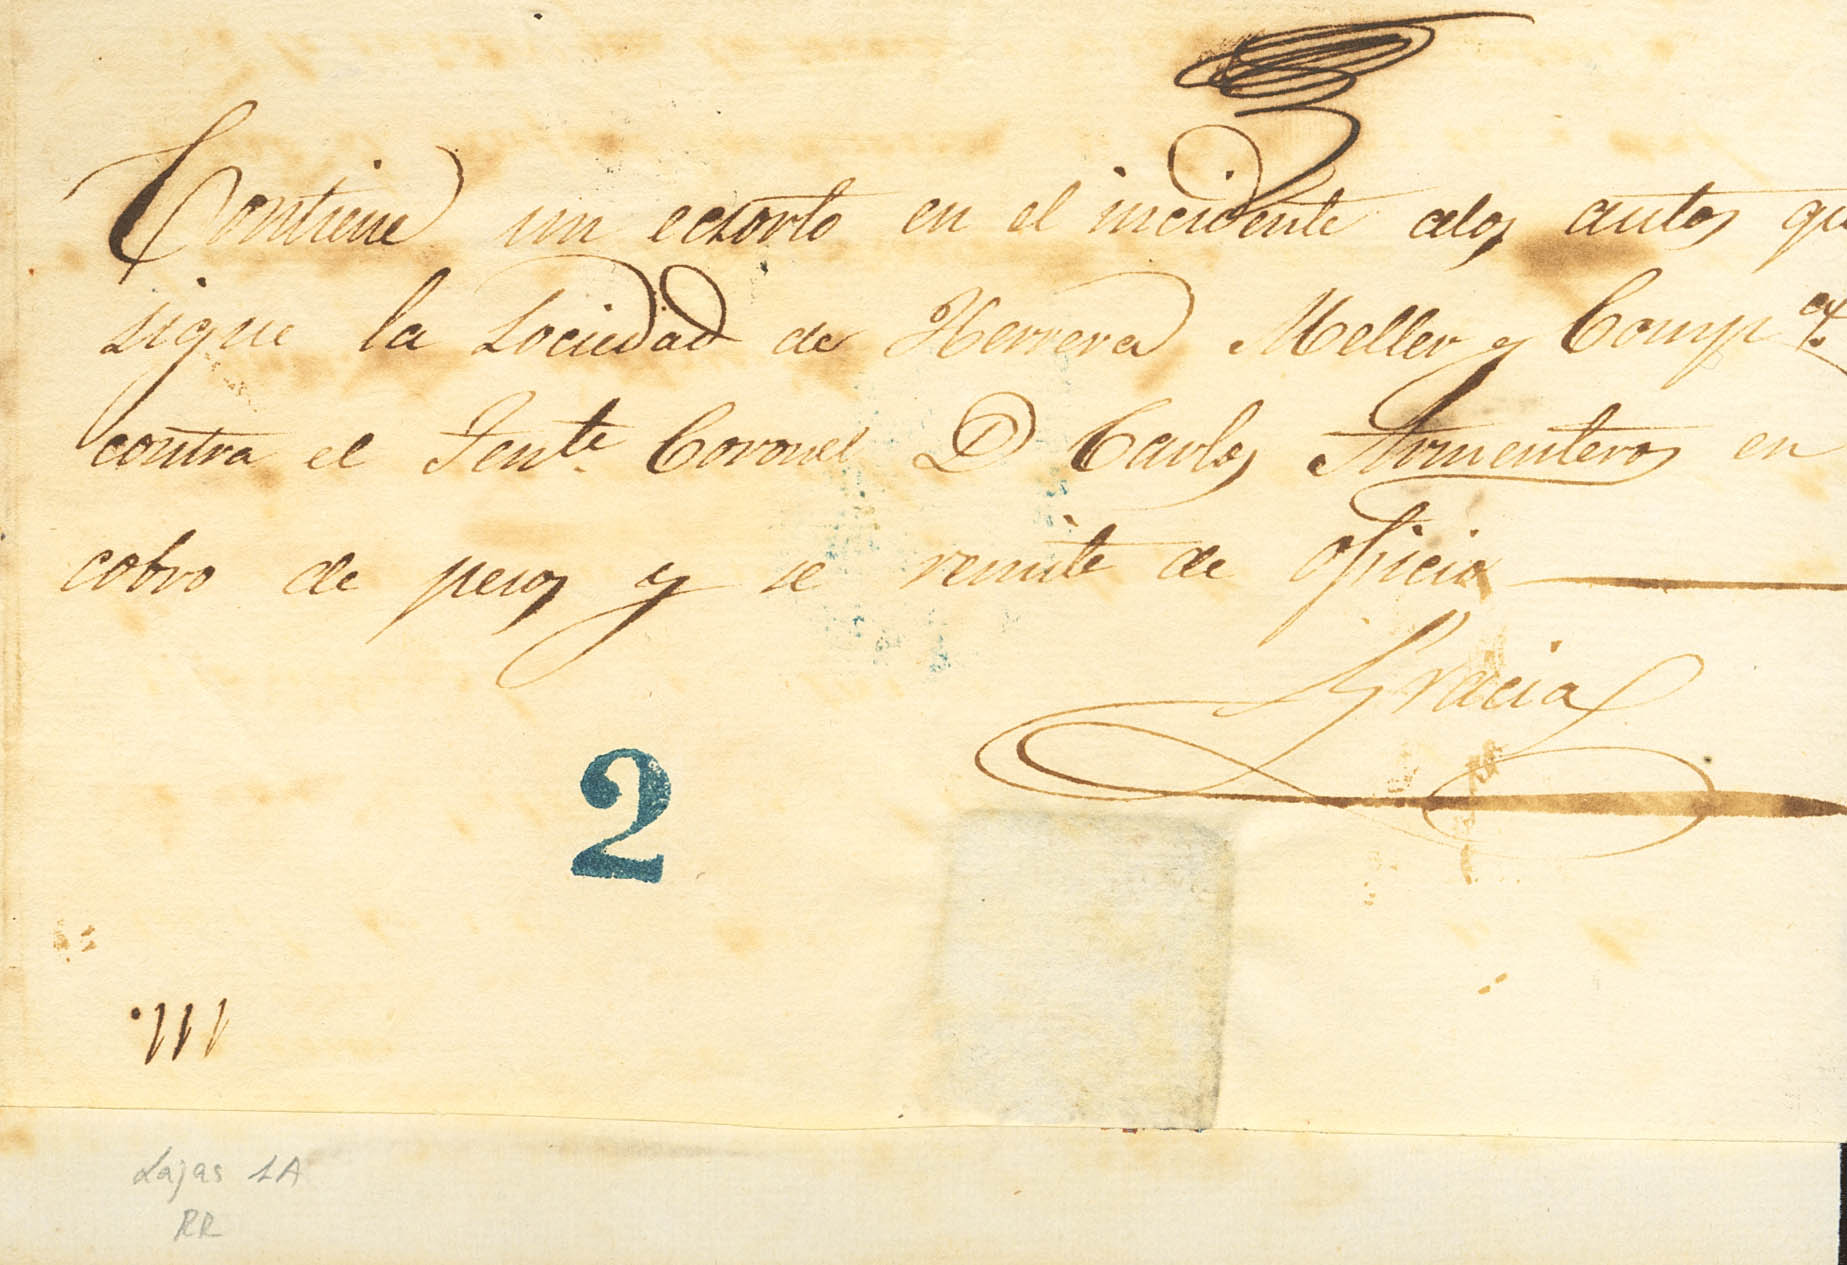 Contiene un ecsorto en el incidente alos autos que
sigue la Sociedad de Herrera Meller y Comp.ª
contra el Tente. Coronel D Carlos Armenteros en
cobro de pesos y se remite de oficio
Gracia
2
Lajas 1A
RR